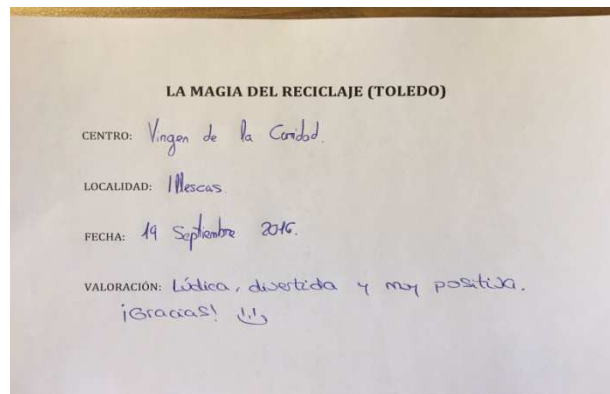 LA MAGIA DEL RECICLAJE (TOLEDO)
CENTRO: Virgen de la Caridad.
LOCALIDAD: Illescas.
FECHA: 19 Septiembre 2016.
VALORACIÓN: Lúdica, divertida y muy positiva.
¡Gracias!